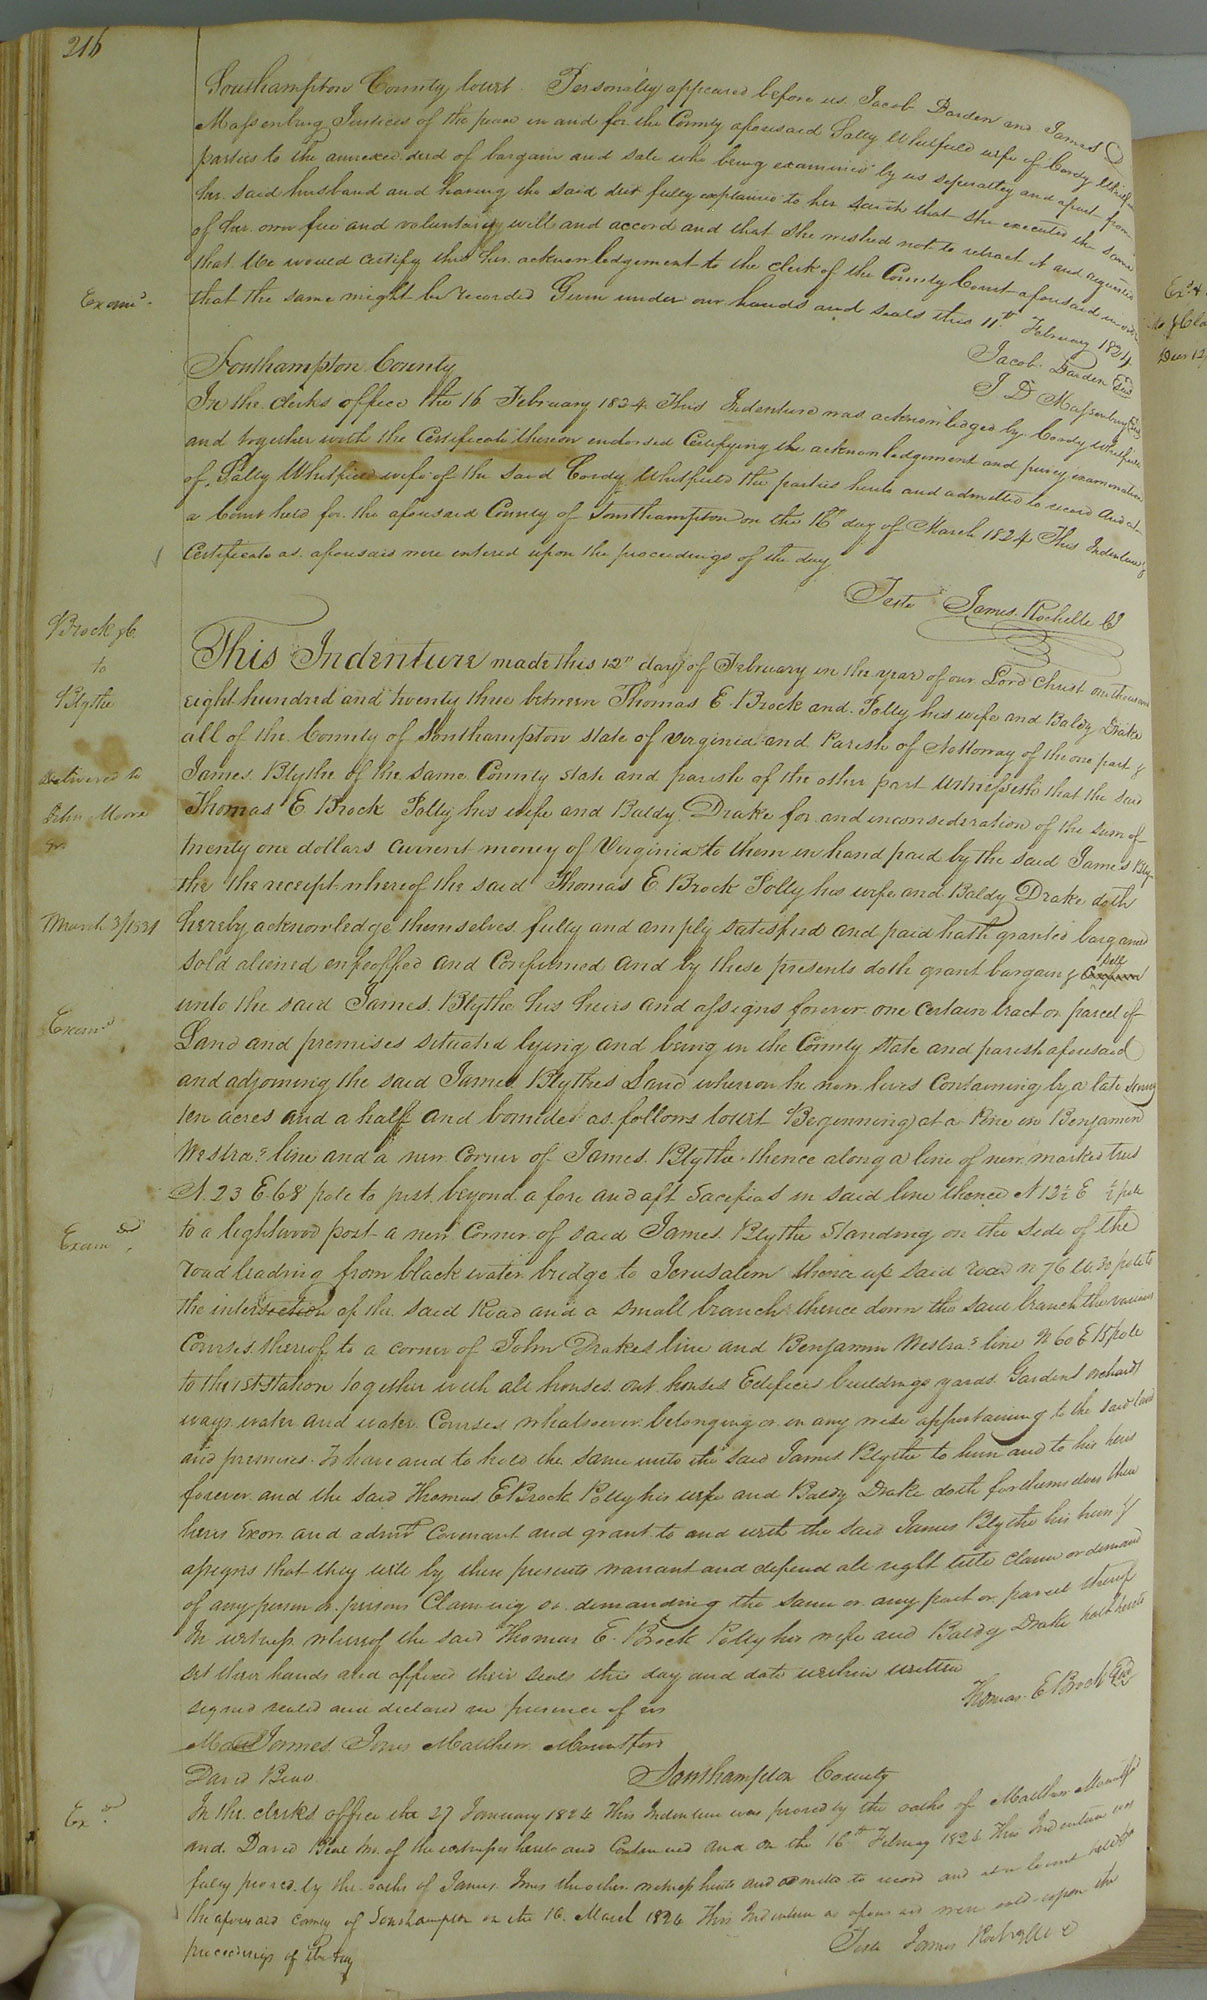 216
Southampton County towit. Personally appeared before us Jacob Darden and James D
Massenburg Justices of the peace in and for the County aforesaid Sally Whitfield wife of Cordy Whitfield
parties to the annexed deed of bargain and sale who being examined by us seperately and apart from
her said husband and having the said deed fully explained to her saith that she executed the same
of her own free and voluntary will and accord and that she wished not to retract it and requested
that We would certify this her acknowledgement to the clerk of the County Court aforesaid in order
Examd.
that the same might be recorded Given under our hands and seals this 11th February 1824
Jacob Darden Seal
J D Massenburg Seal
Southampton County
In the clerks office the 16 February 1824 This Indenture was acknowledged by Cordy Whitfield
and together with the Certificate thereon endorsed Certifying the acknowledgement and privy examination
of Sally Whitfield wife of the said Cordy Whitfield the parties hereto and admitted to record And at
a Court held for the aforesaid County of Southampton on the 16th day of March 1824 This Indenture &
Certificate as aforesaid were entered upon the proceedings of the day
Teste James Rochelle C
Brock &C
to
Blythe
This Indenture made this 12th day of February in the year of our Lord Christ one thousand
eight hundred and twenty three between Thomas E. Brock and Polly his wife and Baldy Drake
all of the County of Southampton state of Virginia and Parish of Nottoway of the one part &
Delivered to
John Moore
March 3/1831
James Blythe of the same County state and parish of the other part Witnesseth that the said
Thomas E. Brock Polly his wife and Baldy Drake for and inconsideration of the sum of
twenty one dollars current money of Virginia to them in hand paid by the said James Bly-
the the receipt whereof the said Thomas E Brock Polly his wife and Baldy Drake doth
hereby acknowledge themselves fully and amply satisfied and paid hath granted bargained
sold aliened enfeoffed and Confirmed and by these presents doth grant bargain & sell
unto the said James Blythe his heirs and assigns forever one certain tract or parcel of
Examd
Land and premises situated lying and being in the County state and parish aforesaid
and adjoining the said James Blythes Land whereon he now lives Containing by a late survey
ten acres and a half and bounded as follows towit Beginning at a Pine in Benjamin
Westras line and a new Corner of James Blythe thence along a line of new marked trees
N. 23 E. 68 pole to just beyond a fore and aft Sasefras in said line thence N 12½ E ½ pole
Examd.
to a lightwood post a new Corner of said James Blythe standing on the side of the
road leading from black water bridge to Jerusalem thence up said road n 76 W. 30 pole to
the intersection of the said Road and a small branch thence down the said branch the various
Courses thereof to a corner of John Drakes line and Benjamin Westras line N 60 E 15 pole
to the 1st station together with all houses out houses Edifices buildings yards Gardens orchards
ways water and water Courses whatsoever belonging or in any wise appertaining to the said land
and premises. To have and to hold the same unto the said James Blythe to him and to his heirs
forever and the said Thomas E Brock Polly his wife and Baldy Drake doth for themselves their
heirs Exors and admrs Covenant and grant to and with the said James Blythe his heirs &
assigns that they will by these presents warrant and defend all right title claim or demand
of any person or persons Claiming or demanding the same or any part or parcel thereof
In witness whereof the said Thomas E. Brock Polly his wife and Baldy Drake hath hereto
set their hands and affixed their seals this day and date within written
signed sealed and declared in presence of us
Thomas E Brock Seal
James Jones Matthew Mountfort
David Beal
Southampton County
Exd.
In the clerks office the 27 January 1824 This Indenture was proved by the oaths of Matthew Mountfort
and David Beal two of the witnesses hereto and Continued and on the 16th February 1824 This Indenture was
fully proved by the oaths of James Jones the other witness hereto and admitted to record and at a Court held for
the aforesaid County of Southampton on the 16 March 1824 This Indenture as aforesaid were entd upon the
proceedings of the day
Teste James Rochelle C